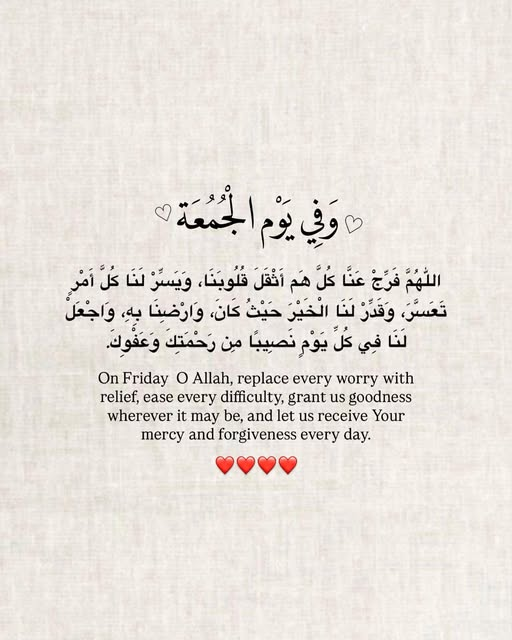 ♡ وَفِي يَوْم الْجُمُعَة ♡
اللّٰهُمَّ فَرِّجْ عَنَّا كُلَّ هَم أَثْقَلَ قُلُوبَنَا، وَيَسِّرْ لَنَا كُلَّ أَمْرٍ
تَعَسَّرَ، وَقَدِّرْ لَنَا الْخَيْرَ حَيْثُ كَانَ، وَارْضِنَا بِهِ، وَاجْعَلْ
لَنَا فِي كُلِّ يَوْمٍ نَصِيبًا مِن رَحْمَتِكَ وَعَفْوِكَ.
On Friday  O Allah, replace every worry with
relief, ease every difficulty, grant us goodness
wherever it may be, and let us receive Your
mercy and forgiveness every day.
❤️❤️❤️❤️